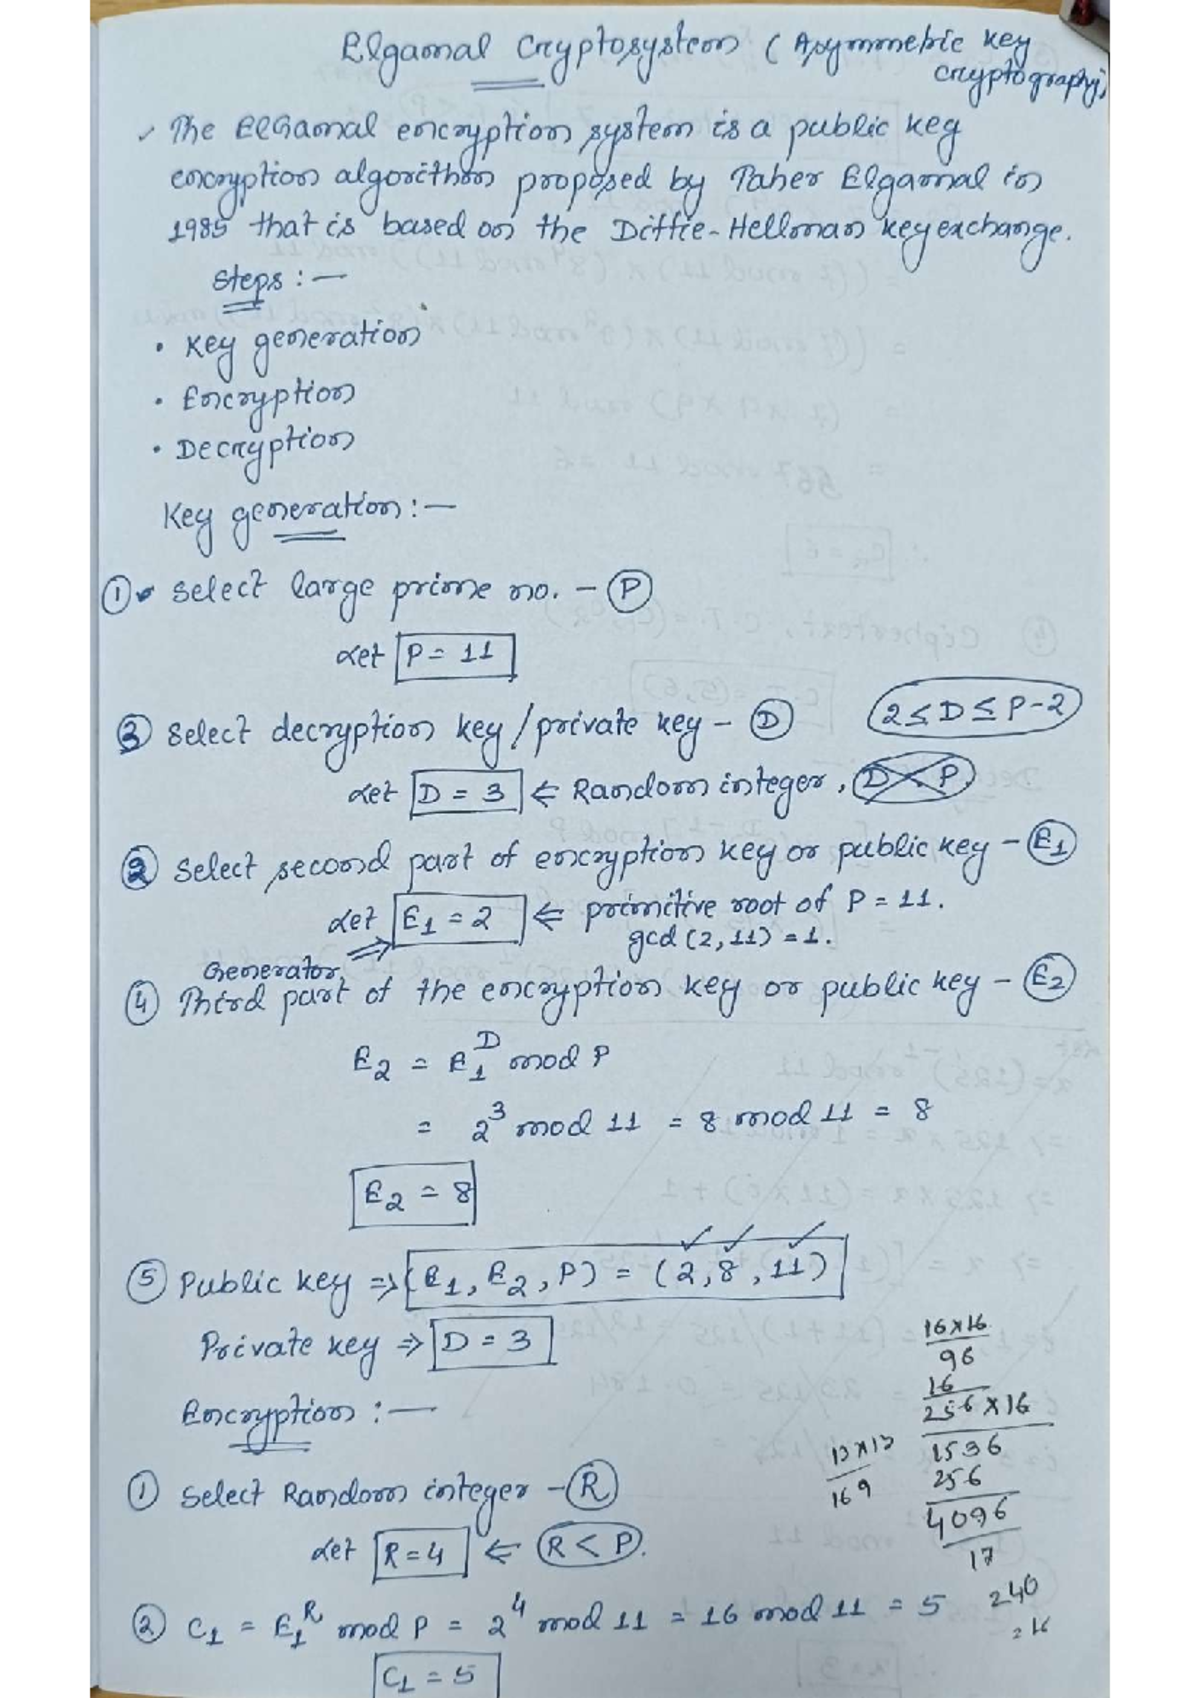 Elgamal Cryptosystem (Asymmetric key
cryptography)
The ElGamal encryption system is a public key
encryption algorithm proposed by Taher Elgamal in
1985 that is based on the Diffie-Hellman key exchange.
Steps :—
• Key generation
• Encryption
• Decryption
Key generation :—
① Select large prime no. – Ⓟ
Let P = 11
③ Select decryption key / private key – Ⓓ 2 ≤ D ≤ P-2
Let D = 3 ⇐ Random integer, D < P
② Select second part of encryption key or public key – E₁
Let E₁ = 2 ⇐ primitive root of P = 11.
gcd (2, 11) = 1.
Generator
④ Third part of the encryption key or public key – E₂
E₂ = E₁^D mod P
= 2³ mod 11 = 8 mod 11 = 8
E₂ = 8
⑤ Public key ⇒ (E₁, E₂, P) = (2, 8, 11)
Private key ⇒ D = 3
16×16
96
16
256×16
1536
256
4096
17
Encryption :—
13×13
169
① Select Random integer – Ⓡ
Let R = 4 ⇐ R < P.
240
② C₁ = E₁^R mod P = 2⁴ mod 11 = 16 mod 11 = 5
C₁ = 5